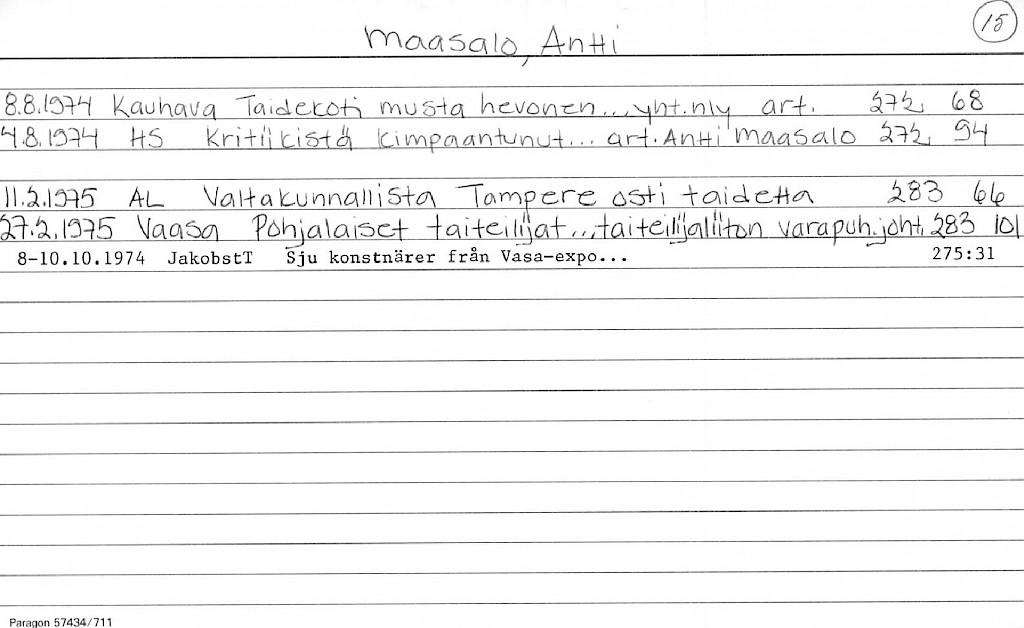 15
Maasalo, Antti
8.8.1974 Kauhava Taidekoti musta hevonen... yht.nly art. 272, 68
4.8.1974 HS Kritiikistä kimpaantunut... art. Antti Maasalo 272, 94
11.2.1975 AL Valtakunnallista Tampere osti taidetta 283 66
27.2.1975 Vaasa Pohjalaiset taiteilijat...taiteilijaliiton varapuh.joht. 283 101
8-10.10.1974 JakobstT Sju konstnärer från Vasa-expo... 275:31
Paragon 57434/711